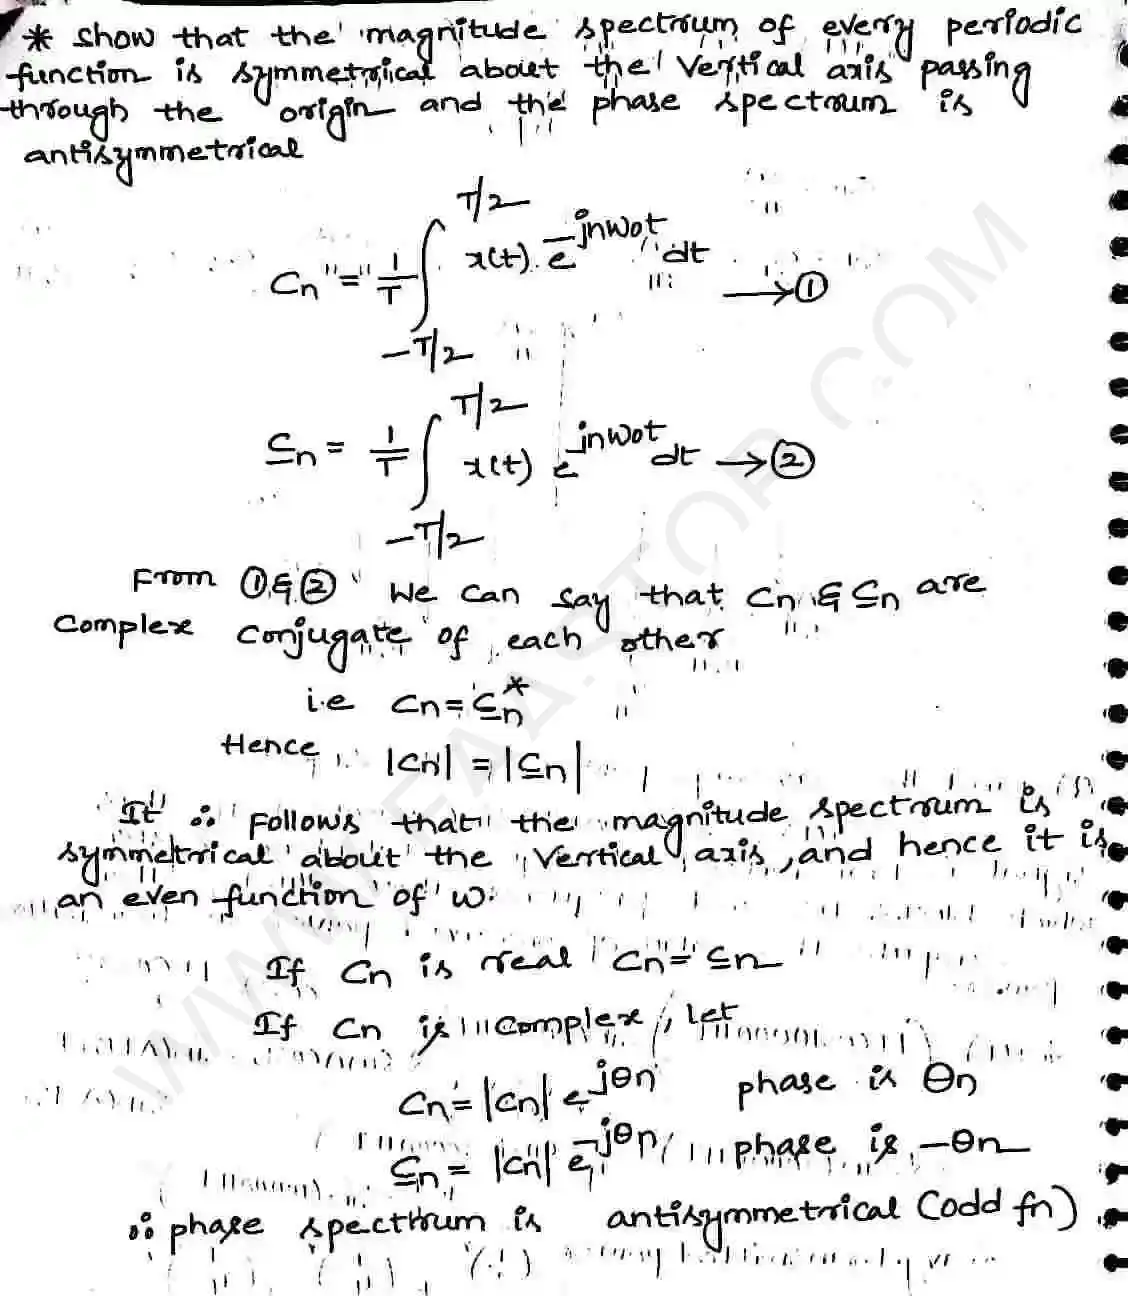 * Show that the magnitude spectrum of every periodic
function is symmetrical about the vertical axis passing
through the origin and the phase spectrum is
antisymmetrical
Cn = 1/T ∫_{-T/2}^{T/2} x(t) e^{-jnω0t} dt → ①
C̲n = 1/T ∫_{-T/2}^{T/2} x(t) e^{jnω0t} dt → ②
From ① & ② We can say that Cn & C̲n are
complex conjugate of each other
i.e Cn = C̲n*
Hence |Cn| = |C̲n|
It ∴ follows that the magnitude spectrum is
symmetrical about the vertical axis, and hence it is
an even function of ω.
If Cn is real Cn = C̲n
If Cn is complex, let
Cn = |Cn| e^{jθn} phase is θn
C̲n = |Cn| e^{-jθn} phase is -θn
∴ phase spectrum is antisymmetrical (odd fn)